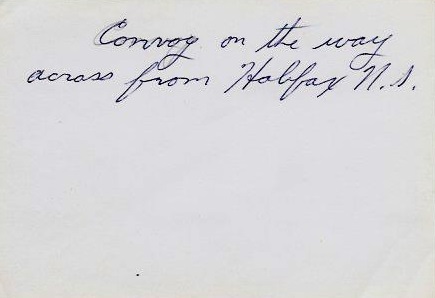 Convoy on the way
across from Halifax N.S.